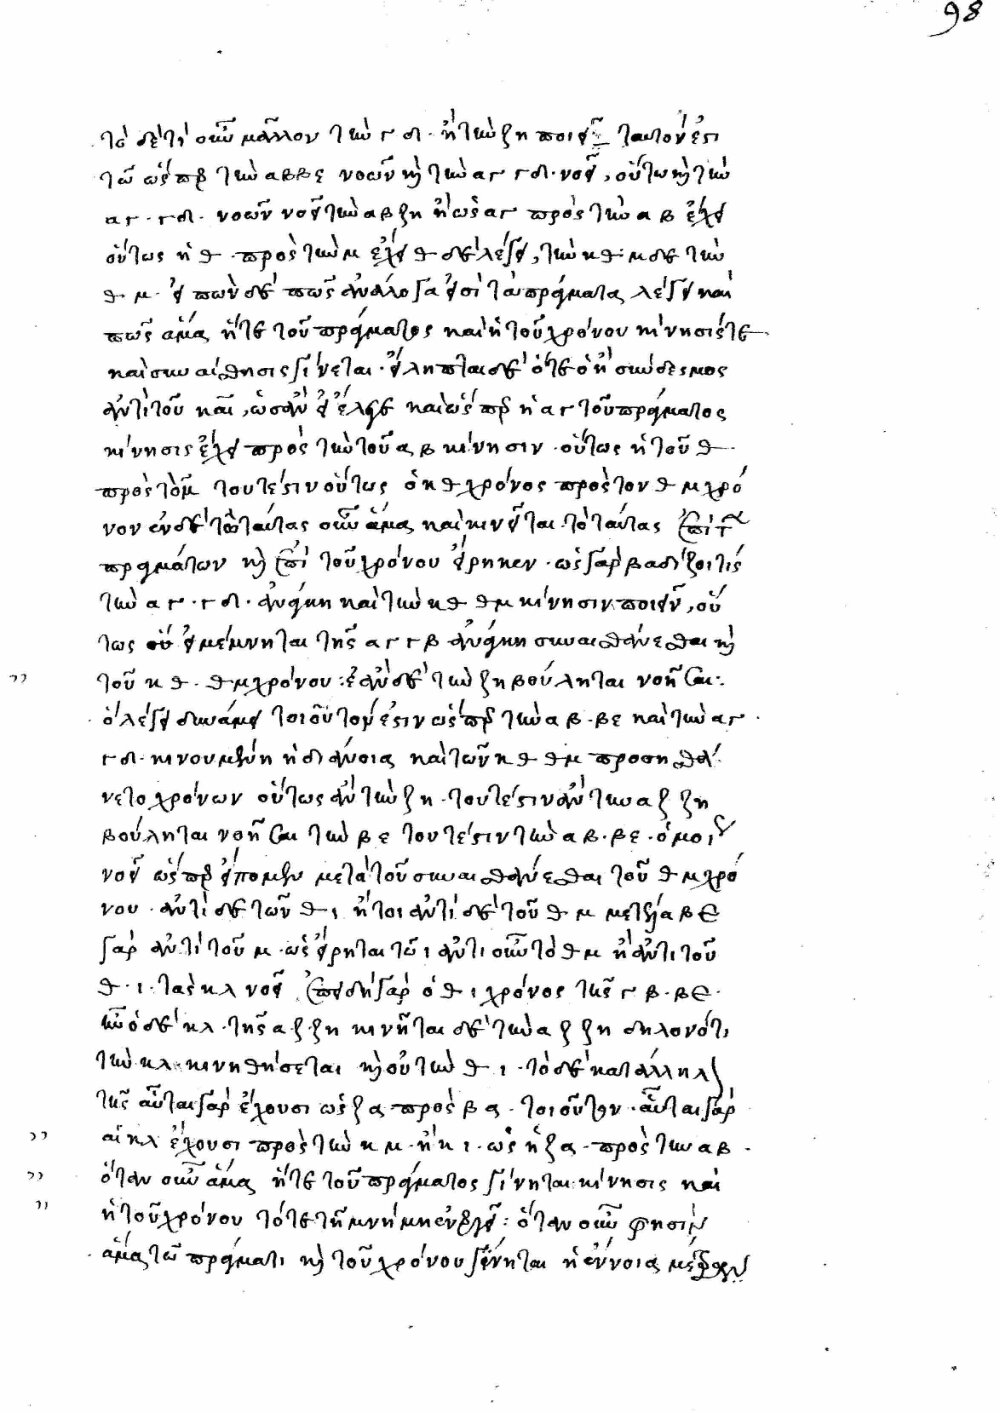 98
τὸ δὲ τί οὖν μᾶλλον τὴν γδ ἢ τὴν ζη ποιεῖ ταυτόν ἐστι
τῷ ὥσπερ τὴν αβ βε νοῶν καὶ τὴν αγ γδ νοεῖ, οὕτω καὶ τὴν
αγ · γδ · νοῶν νοεῖ τὴν αβ ζη ἢ ὡς αγ πρὸς τὴν αβ ἔχει
οὕτως ἡ θ · πρὸς τὴν μ ἔχει θ δὲ λέγει, τὴν κθ · μ δὲ τὴν
θμ · εἰπὼν δὲ πῶς ἀνάλογα εἰσὶ τὰ πράγματα λέγει καὶ
πῶς ἅμα ἥτε τοῦ πράγματος καὶ ἡ τοῦ χρόνου κίνησίς τε
καὶ συναίσθησις γίνεται · εἴληπται δὲ ὅτε ὁ ἢ σύνδεσμος
ἀντὶ τοῦ καὶ, ὡσὰν εἰ ἔλεγε καὶ ὥσπερ ἡ αγ τοῦ πράγματος
κίνησις ἔχει πρὸς τὴν τοῦ αβ κίνησιν · οὕτως ἡ τοῦ θ
πρὸς τὸ μ τουτέστιν οὕτως ὁ κθ χρόνος πρὸς τον θμ χρό
νον ἐν δὲ τῷ ταύτας οὖν ἅμα καὶ κινεῖται τὸ ταύτας ἐπὶ τ
πραγμάτων καὶ ἐπὶ τοῦ χρόνου εἴρηκεν · ὡς γὰρ βαδίζοι τις
τὴν αγ · γδ · ἀνάγκη καὶ τὴν κθ θμ κίνησιν ποιεῖν, οὕ
τως οὗ εἰ μέμνηται τῆς αγ γβ ἀνάγκη συναισθάνεσθαι καὶ
τοῦ κθ · θμ χρόνου : ἐὰν δὲ τὴν ζη βούληται νοῆσαι :
ὃ λέγει δυνάμει τοιοῦτόν ἐστιν ὥσπερ τὴν αβ · βε καὶ τὴν αγ
γδ · κινουμένη ἡ διάνοια καὶ τῶν κθ θμ προσῃσθά
νετο χρόνων οὕτως ἂν τὴν ζη · τουτέστιν ἂν τὴν αζ ζη
βούληται νοῆσαι τὴν βε τουτέστιν τὴν αβ · βε · ὁμοί
νοεῖ ὥσπερ εἴπομεν μετὰ τοῦ συναισθάνεσθαι τοῦ θμ χρό
νου · ἀντὶ δὲ τῶν θι ἤτοι ἀντὶ δὲ τοῦ θμ
γὰρ ἀντὶ τοῦ μ · ὡς εἴρηται τῷ ι ἀντὶ οὖν τὸ θμ ἢ ἀντὶ τοῦ
θ · ι · τὰς κλ νοεῖ ἐπειδὴ γὰρ ὁ θι χρόνος τῆς γβ · βε ·
ἦν ὁ δὲ κλ · τῆς αζ ζη κινεῖται δὲ τὴν αζ ζη δηλονότι
τὴν κλ κινηθήσεται καὶ οὐ τὴν θι · τὸ δὲ κατάλληλ
τῆς αὗται γὰρ ἔχουσι ὡς ζα πρὸς βα · τοιοῦτον · αὗται γὰρ
αἱ κλ ἔχουσι πρὸς τὴν κμ · ἢ κι · ὡς ἡ ζα · πρὸς τὴν αβ ·
ὅταν οὖν ἅμα ἥτε τοῦ πράγματος γίνηται κίνησις καὶ
ἡ τοῦ χρόνου τότε τῇ μνήμῃ ἐνεργεῖ : ὅταν οὖν φησιν
ἅμα τῷ πράγματι καὶ τοῦ χρόνου γένηται ἡ ἔννοια